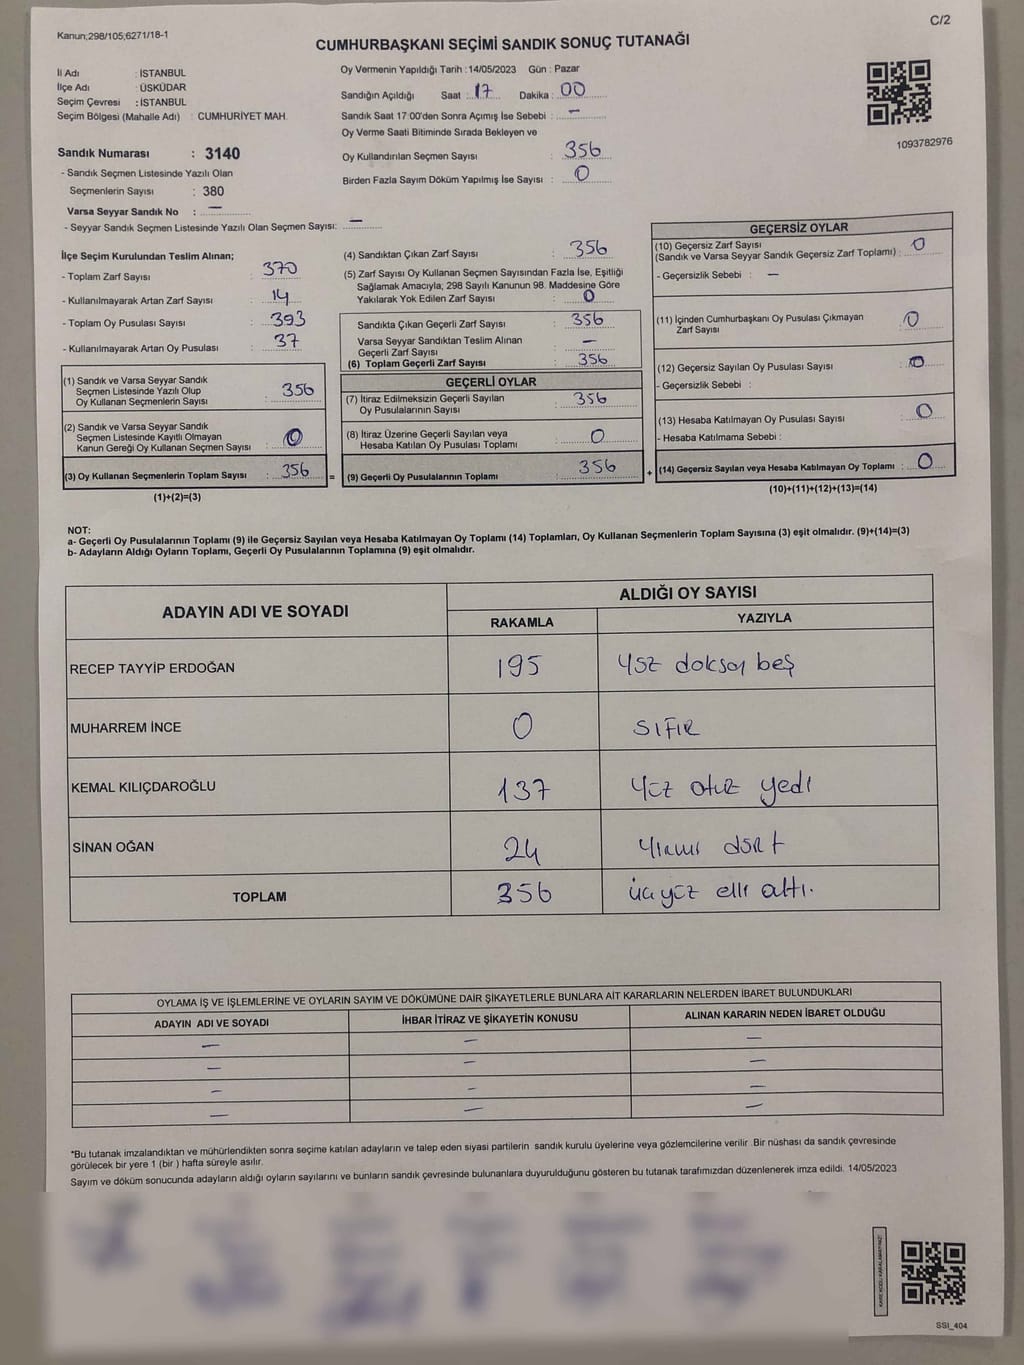 Kanun;298/105;6271/18-1
C/2
CUMHURBAŞKANI SEÇİMİ SANDIK SONUÇ TUTANAĞI
İl Adı : İSTANBUL
İlçe Adı : ÜSKÜDAR
Seçim Çevresi : İSTANBUL
Seçim Bölgesi (Mahalle Adı) : CUMHURİYET MAH.
Sandık Numarası : 3140
- Sandık Seçmen Listesinde Yazılı Olan
Seçmenlerin Sayısı : 380
Varsa Seyyar Sandık No : —
- Seyyar Sandık Seçmen Listesinde Yazılı Olan Seçmen Sayısı: —
Oy Vermenin Yapıldığı Tarih :14/05/2023 Gün : Pazar
Sandığın Açıldığı Saat : 17 Dakika : 00
Sandık Saat 17:00'den Sonra Açımış İse Sebebi : —
Oy Verme Saati Bitiminde Sırada Bekleyen ve
Oy Kullandırılan Seçmen Sayısı : 356
Birden Fazla Sayım Döküm Yapılmış İse Sayısı : 0
1093782976
İlçe Seçim Kurulundan Teslim Alınan;
- Toplam Zarf Sayısı : 370
- Kullanılmayarak Artan Zarf Sayısı : 14
- Toplam Oy Pusulası Sayısı : 393
- Kullanılmayarak Artan Oy Pusulası : 37
(1) Sandık ve Varsa Seyyar Sandık
Seçmen Listesinde Yazılı Olup
Oy Kullanan Seçmenlerin Sayısı : 356
(2) Sandık ve Varsa Seyyar Sandık
Seçmen Listesinde Kayıtlı Olmayan
Kanun Gereği Oy Kullanan Seçmen Sayısı : 0
(3) Oy Kullanan Seçmenlerin Toplam Sayısı : 356 =
(1)+(2)=(3)
(4) Sandıktan Çıkan Zarf Sayısı : 356
(5) Zarf Sayısı Oy Kullanan Seçmen Sayısından Fazla İse, Eşitliği
Sağlamak Amacıyla; 298 Sayılı Kanunun 98. Maddesine Göre
Yakılarak Yok Edilen Zarf Sayısı : 0
Sandıkta Çıkan Geçerli Zarf Sayısı : 356
Varsa Seyyar Sandıktan Teslim Alınan
Geçerli Zarf Sayısı : —
(6) Toplam Geçerli Zarf Sayısı : 356
GEÇERLİ OYLAR
(7) İtiraz Edilmeksizin Geçerli Sayılan
Oy Pusulalarının Sayısı : 356
(8) İtiraz Üzerine Geçerli Sayılan veya
Hesaba Katılan Oy Pusulası Toplamı : 0
(9) Geçerli Oy Pusulalarının Toplamı : 356 +
GEÇERSİZ OYLAR
(10) Geçersiz Zarf Sayısı
(Sandık ve Varsa Seyyar Sandık Geçersiz Zarf Toplamı) : 0
- Geçersizlik Sebebi : —
(11) İçinden Cumhurbaşkanı Oy Pusulası Çıkmayan
Zarf Sayısı : 0
(12) Geçersiz Sayılan Oy Pusulası Sayısı : 0
- Geçersizlik Sebebi :
(13) Hesaba Katılmayan Oy Pusulası Sayısı : 0
- Hesaba Katılmama Sebebi :
(14) Geçersiz Sayılan veya Hesaba Katılmayan Oy Toplamı : 0
(10)+(11)+(12)+(13)=(14)
NOT:
a- Geçerli Oy Pusulalarının Toplamı (9) ile Geçersiz Sayılan veya Hesaba Katılmayan Oy Toplamı (14) Toplamları, Oy Kullanan Seçmenlerin Toplam Sayısına (3) eşit olmalıdır. (9)+(14)=(3)
b- Adayların Aldığı Oyların Toplamı, Geçerli Oy Pusulalarının Toplamına (9) eşit olmalıdır.
ADAYIN ADI VE SOYADI
ALDIĞI OY SAYISI
RAKAMLA YAZIYLA
RECEP TAYYİP ERDOĞAN 195 yüz doksan beş
MUHARREM İNCE 0 SIFIR
KEMAL KILIÇDAROĞLU 137 yüz otuz yedi
SİNAN OĞAN 24 yirmi dört
TOPLAM 356 üçyüz elli altı.
OYLAMA İŞ VE İŞLEMLERİNE VE OYLARIN SAYIM VE DÖKÜMÜNE DAİR ŞİKAYETLERLE BUNLARA AİT KARARLARIN NELERDEN İBARET BULUNDUKLARI
ADAYIN ADI VE SOYADI İHBAR İTİRAZ VE ŞİKAYETİN KONUSU ALINAN KARARIN NEDEN İBARET OLDUĞU
— — —
— — —
— — —
— — —
*Bu tutanak imzalandıktan ve mühürlendikten sonra seçime katılan adayların ve talep eden siyasi partilerin sandık kurulu üyelerine veya gözlemcilerine verilir .Bir nüshası da sandık çevresinde
görülecek bir yere 1 (bir ) hafta süreyle asılır.
Sayım ve döküm sonucunda adayların aldığı oyların sayılarını ve bunların sandık çevresinde bulunanlara duyurulduğunu gösteren bu tutanak tarafımızdan düzenlenerek imza edildi. 14/05/2023
KARE KODU KARALAMAYINIZ!
SSI_404